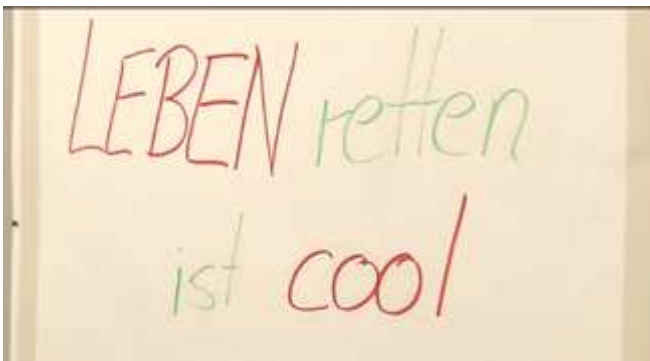 LEBEN retten
ist cool